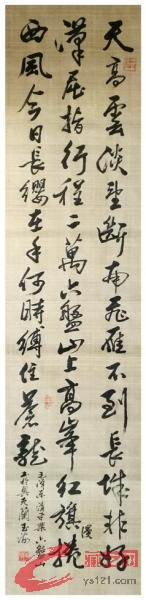 天高雲淡望斷南飛雁不到長城非好
漢屈指行程二萬六盤山上高峯紅旗捲
漫
西風今日長纓在手何時縛住蒼龍
毛澤東清平樂六盤山
ys121.com